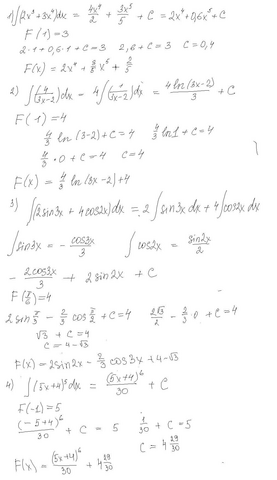 1) ∫(2x³+3x⁴)dx = 4x⁴/2 + 3x⁵/5 + C = 2x⁴+0,6x⁵+C
F(1)=3
2·1+0,6·1+C=3 2,6+C=3 C=0,4
F(x) = 2x⁴+3/5x⁵+2/5
2) ∫(4/(3x-2))dx = 4∫(1/(3x-2))dx = 4ln(3x-2)/3 + C
F(1)=4
4/3 ln(3-2)+C=4 4/3 ln1+C=4
4/3·0+C=4 C=4
F(x) = 4/3 ln(3x-2)+4
3) ∫(2sin3x+4cos2x)dx = 2∫sin3x dx + 4∫cos2x dx
∫sin3x = -cos3x/3 ∫cos2x = sin2x/2
-2cos3x/3 + 2sin2x + C
F(π/6)=4
2sin π/3 - 2/3 cos π/2 + C=4 2√3/2 - 2/3·0+C=4
√3+C=4
C=4-√3
F(x)=2sin2x-2/3cos3x+4-√3
4) ∫(5x+4)⁵dx = (5x+4)⁶/30 + C
F(-1)=5
(-5+4)⁶/30 + C = 5 1/30+C=5
C=4 29/30
F(x)=(5x+4)⁶/30 + 4 29/30